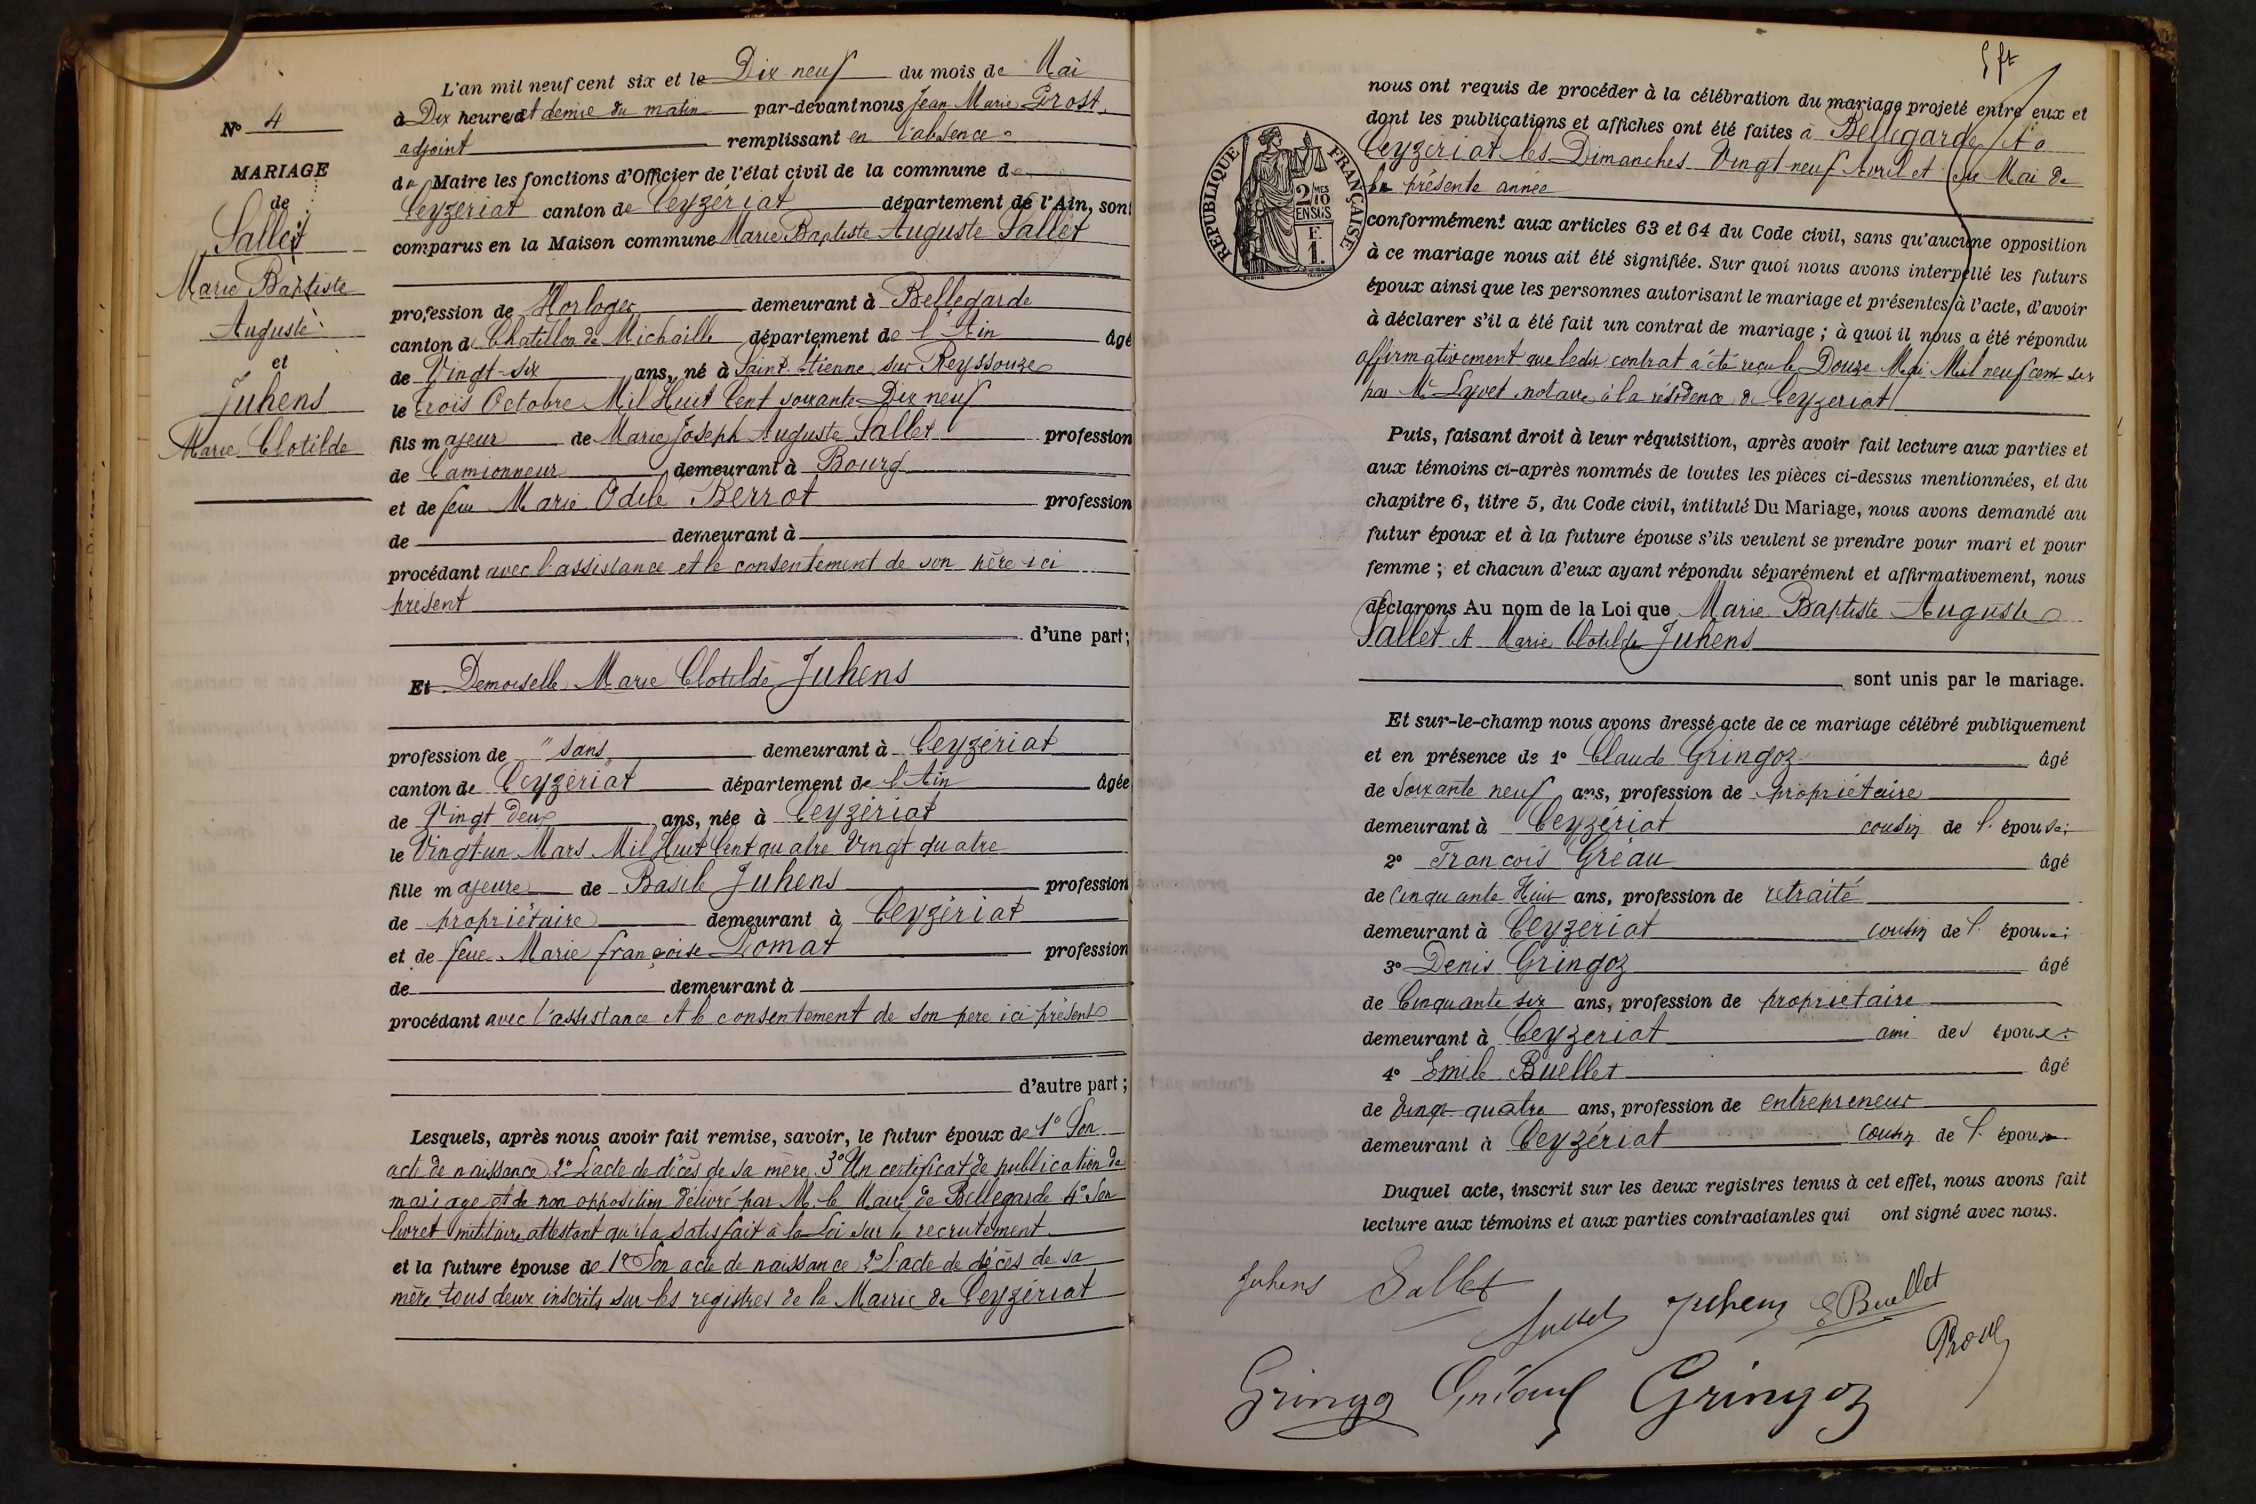 L'an mil neuf cent six et le Dix neuf du mois de Mai
à Dix heures et demie du matin par-devant nous Jean Marie Grost
adjoint remplissant en l'absence
du Maire les fonctions d'Officier de l'état civil de la commune de
Ceyzériat canton de Ceyzériat département de l'Ain, sont
comparus en la Maison commune Marie Baptiste Auguste Sallet
profession de Horloger demeurant à Bellegarde
canton de Chatillon de Michaille département de l'Ain âgé
de Vingt-six ans, né à Saint Etienne sur Reyssouze
le trois Octobre Mil Huit Cent soixante Dix neuf
fils majeur de Marie Joseph Auguste Sallet profession
de Camionneur demeurant à Bourg
et de feue Marie Odile Berrot profession
de demeurant à
procédant avec l'assistance et le consentement de son père ici
présent
d'une part;
Et Demoiselle Marie Clotilde Juhens
profession de "sans" demeurant à Ceyzériat
canton de Ceyzériat département de l'Ain âgée
de Vingt deux ans, née à Ceyzériat
le Vingt-un Mars Mil Huit Cent quatre Vingt quatre
fille majeure de Basile Juhens profession
de propriétaire demeurant à Ceyzériat
et de feue Marie françoise Lomat profession
de demeurant à
procédant avec l'assistance et le consentement de son père ici présent
d'autre part;
Lesquels, après nous avoir fait remise, savoir, le futur époux de 1° Son
acte de naissance 2° L'acte de décès de sa mère 3° Un certificat de publication de
mariage et de non opposition délivré par M. le Maire de Bellegarde 4° Son
livret militaire attestant qu'il a satisfait à la Loi sur le recrutement
et la future épouse de 1° Son acte de naissance 2° L'acte de décès de sa
mère tous deux inscrits sur les registres de la Mairie de Ceyzériat
N° 4
MARIAGE
de
Sallet
Marie Baptiste
Auguste
et
Juhens
Marie Clotilde
nous ont requis de procéder à la célébration du mariage projeté entre eux et
dont les publications et affiches ont été faites à Bellegarde et à
Ceyzériat les Dimanches Vingt neuf Avril et six Mai de
la présente année
conformément aux articles 63 et 64 du Code civil, sans qu'aucune opposition
à ce mariage nous ait été signifiée. Sur quoi nous avons interpellé les futurs
époux ainsi que les personnes autorisant le mariage et présentes à l'acte, d'avoir
à déclarer s'il a été fait un contrat de mariage; à quoi il nous a été répondu
affirmativement que ledit contrat a été reçu le Douze Mai Mil neuf cent six
par Me Lyvet notaire à la résidence de Ceyzériat
Puis, faisant droit à leur réquisition, après avoir fait lecture aux parties et
aux témoins ci-après nommés de toutes les pièces ci-dessus mentionnées, et du
chapitre 6, titre 5, du Code civil, intitulé Du Mariage, nous avons demandé au
futur époux et à la future épouse s'ils veulent se prendre pour mari et pour
femme; et chacun d'eux ayant répondu séparément et affirmativement, nous
déclarons Au nom de la Loi que Marie Baptiste Auguste
Sallet et Marie Clotilde Juhens
sont unis par le mariage.
Et sur-le-champ nous avons dressé acte de ce mariage célébré publiquement
et en présence de 1° Claude Gringoz âgé
de Soixante neuf ans, profession de propriétaire
demeurant à Ceyzériat cousin de l'épouse;
2° François Gréau âgé
de Cinquante Huit ans, profession de retraité
demeurant à Ceyzériat cousin de l'épouse;
3° Denis Gringoz âgé
de Cinquante six ans, profession de propriétaire
demeurant à Ceyzériat ami des époux;
4° Emile Buellet âgé
de Vingt quatre ans, profession de entrepreneur
demeurant à Ceyzériat cousin de l'épouse
Duquel acte, inscrit sur les deux registres tenus à cet effet, nous avons fait
lecture aux témoins et aux parties contractantes qui ont signé avec nous.
Juhens Sallet
Sallet Juhens E Buellet
Gringoz Gréau Gringoz
RÉPUBLIQUE FRANÇAISE
2/10 MES
EN SUS
F.
1.